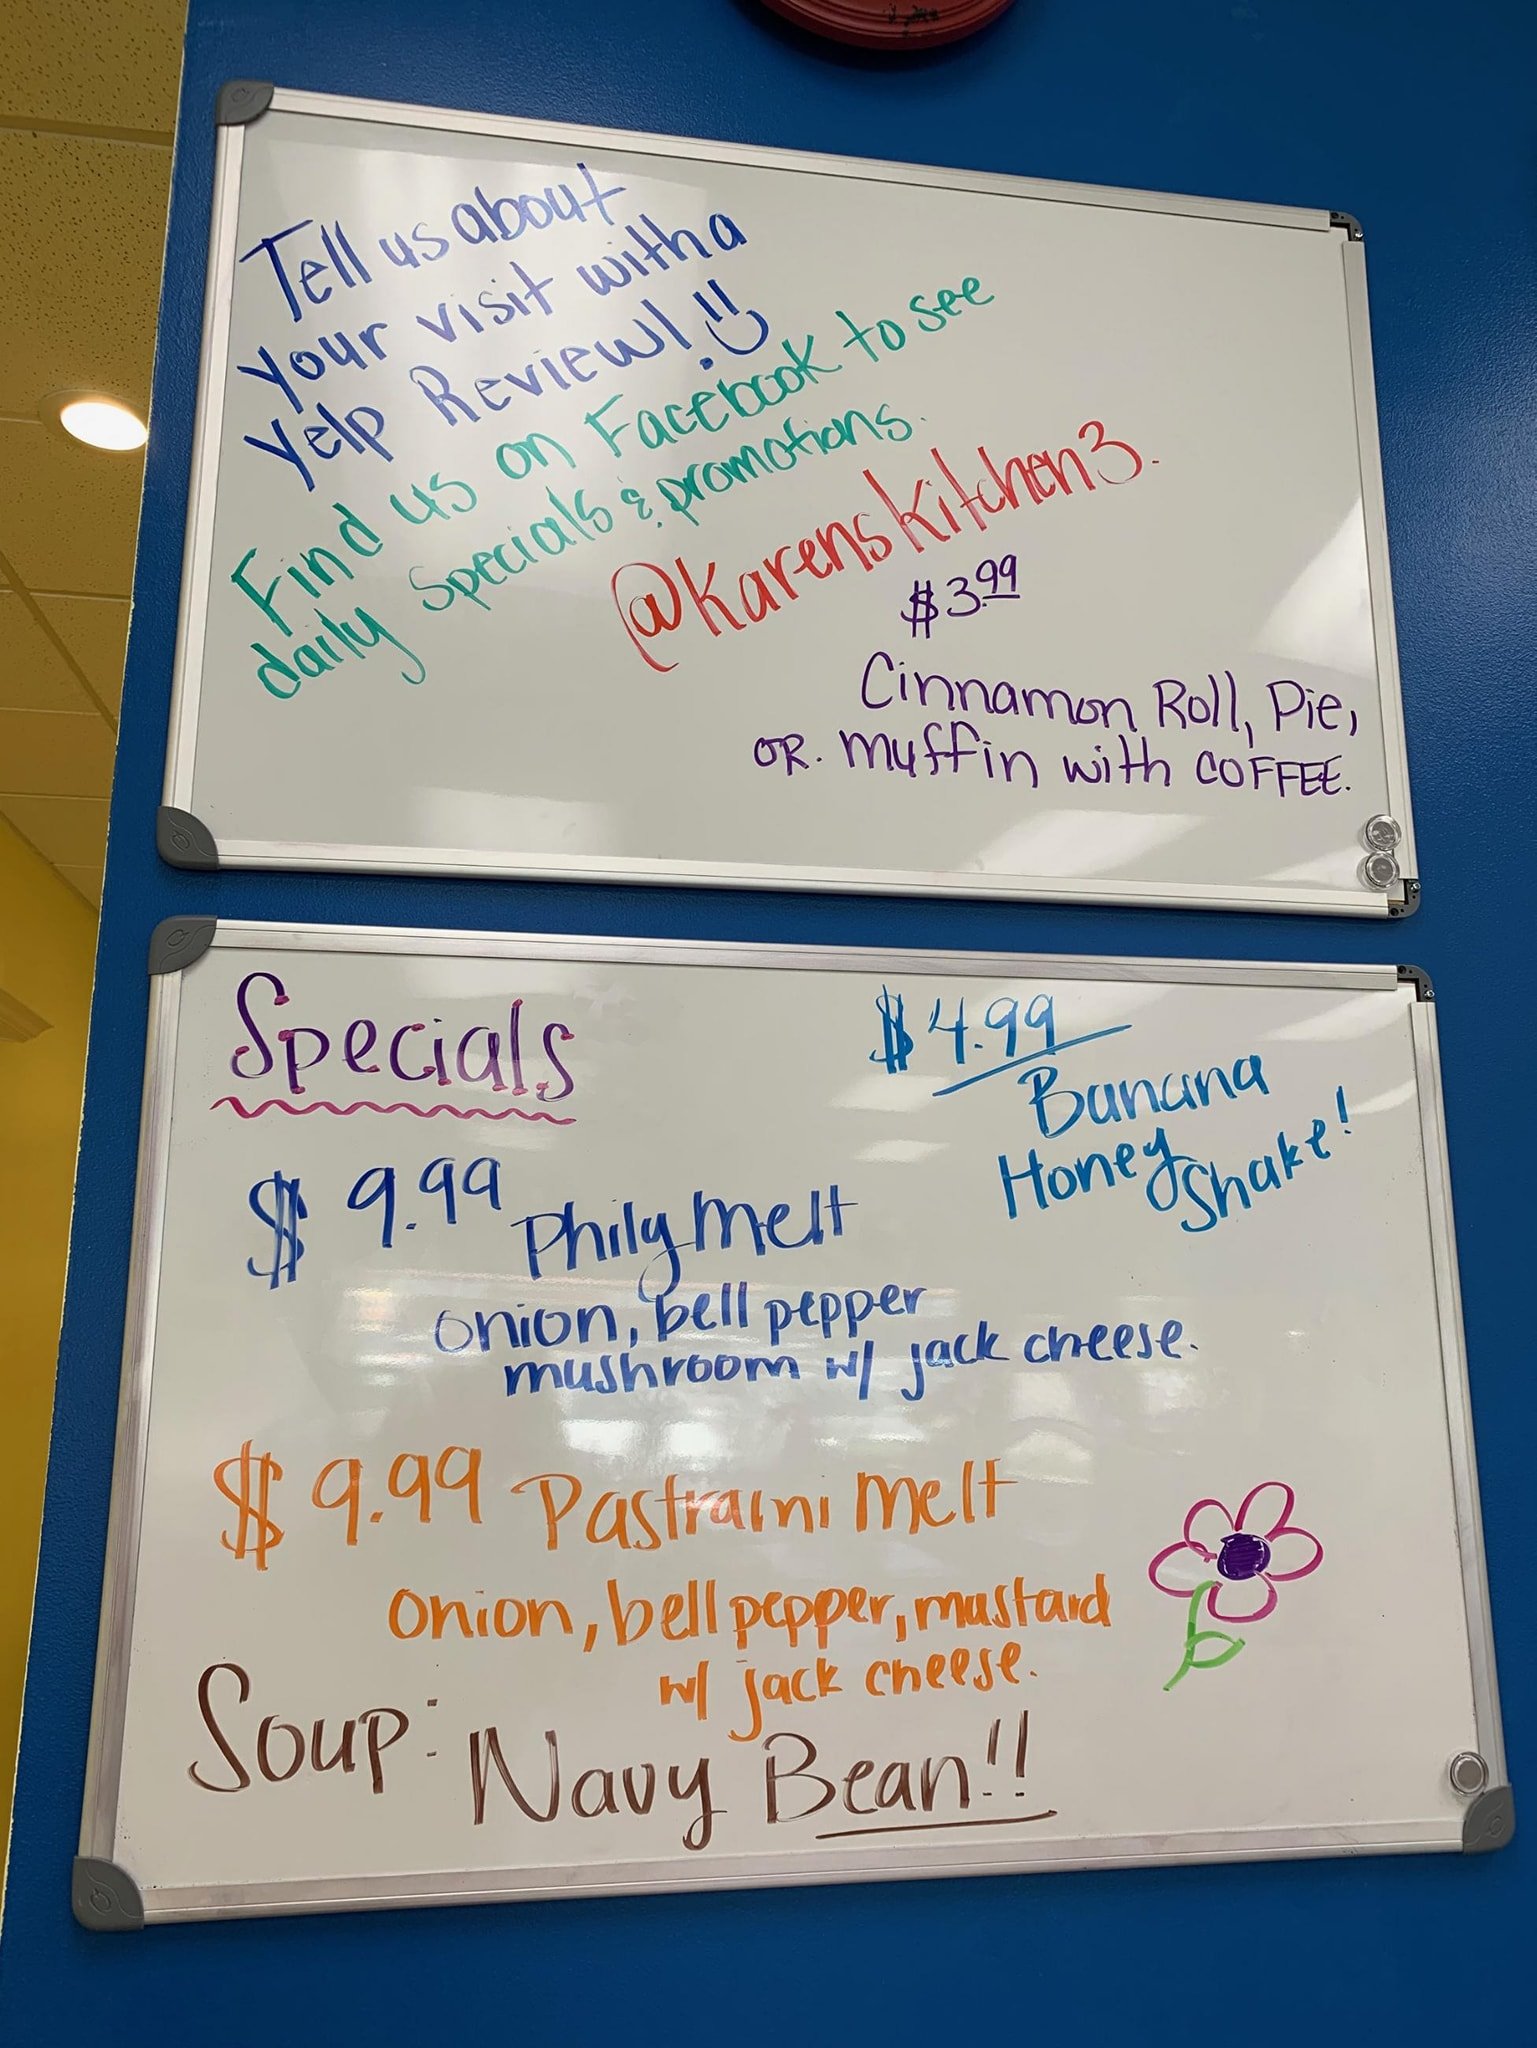 Tell us about
your visit with a
Yelp Review!
Find us on Facebook to see
daily specials & promotions.
@Karenskitchen3.
$3.99
Cinnamon Roll, Pie,
OR. muffin with COFFEE.
Specials
$4.99
Banana
Honey Shake!
$9.99 Phily Melt
onion, bell pepper
mushroom w/ jack cheese.
$9.99 Pastrami Melt
onion, bell pepper, mustard
w/ jack cheese.
Soup: Navy Bean!!